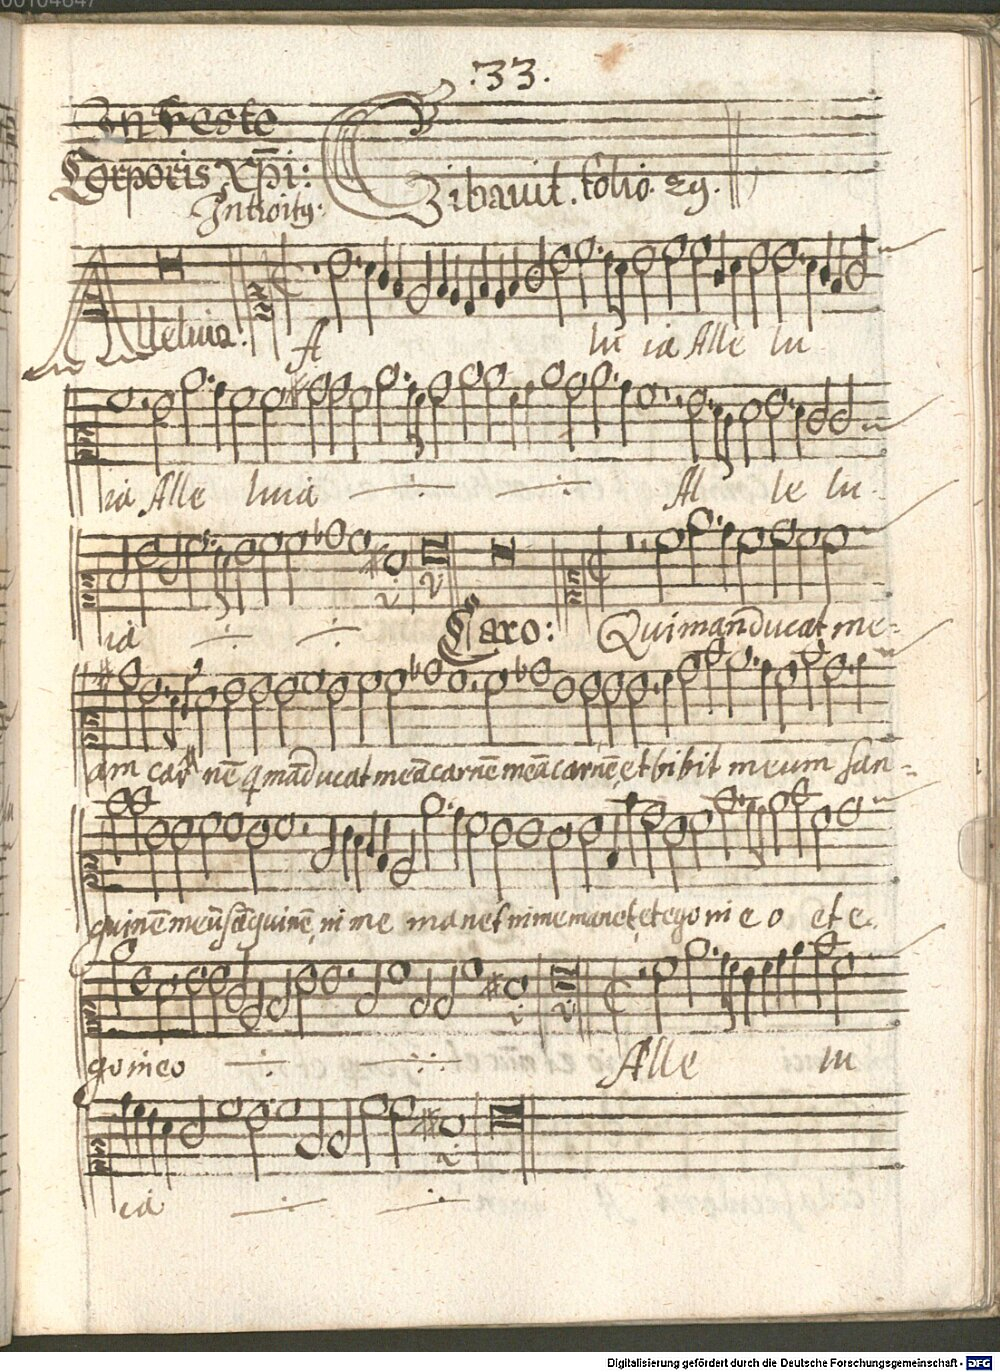 00104847
.33.
In Festo
Corporis Xpi:
Introitg.
Cibavit. folio. 29.
Alleluia. A lu ia Alle lu
ia Alle luia Al le lu
ia Caro: Qui manducat me-
am carnē q māducat meā carnē meā carnē, et bibit meum san-
guinē meū sāguinē, in me manet in me manet, et ego in e o et e.
go in eo Alle lu
ia
Digitalisierung gefördert durch die Deutsche Forschungsgemeinschaft - DFG